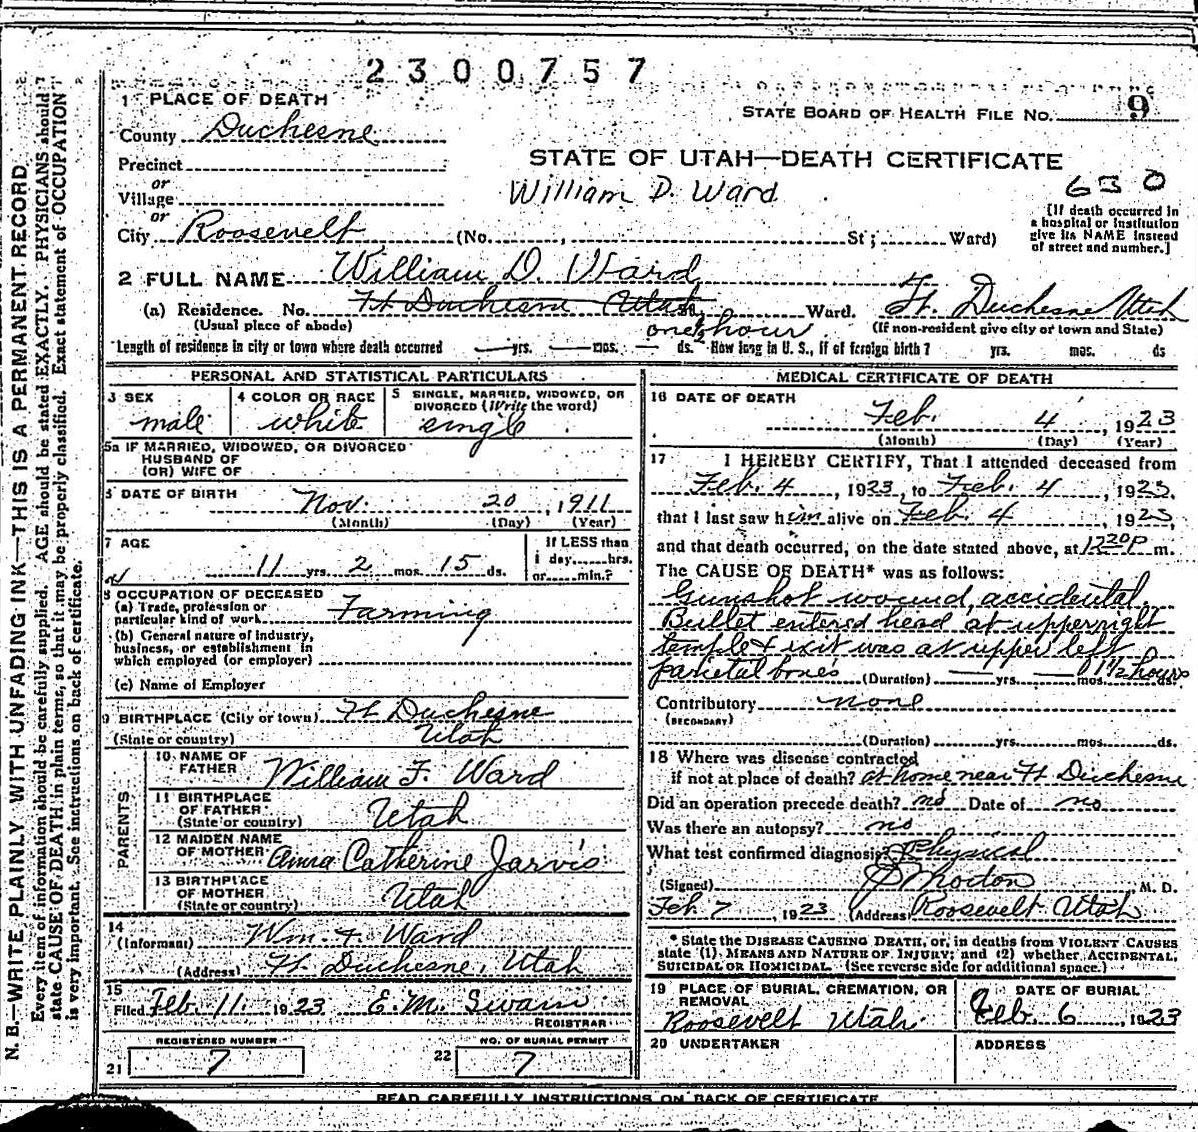 2300757
1 PLACE OF DEATH
STATE BOARD OF HEALTH FILE NO. 9
County Duchesne
STATE OF UTAH—DEATH CERTIFICATE
Precinct
or
Village
William D. Ward
630
or
City Roosevelt (No. , St.; Ward)
[If death occurred in
a hospital or institution
give its NAME instead
of street and number.]
2 FULL NAME William D. Ward
(a) Residence. No. Ft Duchesne Utah St., Ward. Ft. Duchesne Utah
(Usual place of abode) (If non-resident give city or town and State)
one ½ hour
Length of residence in city or town where death occurred — yrs. — mos. — ds. How long in U. S., if of foreign birth? yrs. mos. ds
PERSONAL AND STATISTICAL PARTICULARS
3 SEX
male
4 COLOR OR RACE
white
5 SINGLE, MARRIED, WIDOWED, OR
DIVORCED (Write the word)
single
5a IF MARRIED, WIDOWED, OR DIVORCED
HUSBAND OF
(OR) WIFE OF
6 DATE OF BIRTH
Nov. 20, 1911
(Month) (Day) (Year)
7 AGE
11 yrs. 2 mos. 15 ds.
If LESS than
1 day......hrs.
or......min.?
8 OCCUPATION OF DECEASED
(a) Trade, profession or
particular kind of work Farming
(b) General nature of industry,
business, or establishment in
which employed (or employer)
(c) Name of Employer
9 BIRTHPLACE (City or town) Ft Duchesne
(State or country) Utah
PARENTS
10 NAME OF
FATHER William F. Ward
11 BIRTHPLACE
OF FATHER
(State or country) Utah
12 MAIDEN NAME
OF MOTHER Anna Catherine Jarvis
13 BIRTHPLACE
OF MOTHER
(State or country) Utah
14
(Informant) Wm. F. Ward
(Address) Ft. Duchesne, Utah
15
Filed Feb. 11. 1923 E. M. Swain
REGISTRAR
REGISTERED NUMBER
21 7
NO. OF BURIAL PERMIT
22 7
MEDICAL CERTIFICATE OF DEATH
16 DATE OF DEATH
Feb. 4, 1923
(Month) (Day) (Year)
17 I HEREBY CERTIFY, That I attended deceased from
Feb. 4, 1923, to Feb. 4, 1923,
that I last saw him alive on Feb. 4, 1923,
and that death occurred, on the date stated above, at 1220P m.
The CAUSE OF DEATH* was as follows:
Gunshot wound, accidental
Bullet entered head at upper right
temple & exit was at upper left
parietal bones (Duration) — yrs. — mos. 1½ hours ds.
Contributory none
(SECONDARY)
(Duration) yrs. mos. ds.
18 Where was disease contracted
if not at place of death? at home near Ft Duchesne
Did an operation precede death? no Date of no
Was there an autopsy? no
What test confirmed diagnosis? Physical
(Signed) J Morton, M. D.
Feb 7, 1923 (Address) Roosevelt Utah
* State the DISEASE CAUSING DEATH, or, in deaths from VIOLENT CAUSES
state (1) MEANS AND NATURE OF INJURY; and (2) whether ACCIDENTAL,
SUICIDAL OR HOMICIDAL. (See reverse side for additional space.)
19 PLACE OF BURIAL, CREMATION, OR
REMOVAL
Roosevelt Utah.
DATE OF BURIAL
Feb. 6, 1923
20 UNDERTAKER
ADDRESS
READ CAREFULLY INSTRUCTIONS ON BACK OF CERTIFICATE
N. B.—WRITE PLAINLY WITH UNFADING INK—THIS IS A PERMANENT RECORD
Every item of information should be carefully supplied. AGE should be stated EXACTLY. PHYSICIANS should
state CAUSE OF DEATH in plain terms, so that it may be properly classified. Exact statement of OCCUPATION
is very important. See instructions on back of certificate.